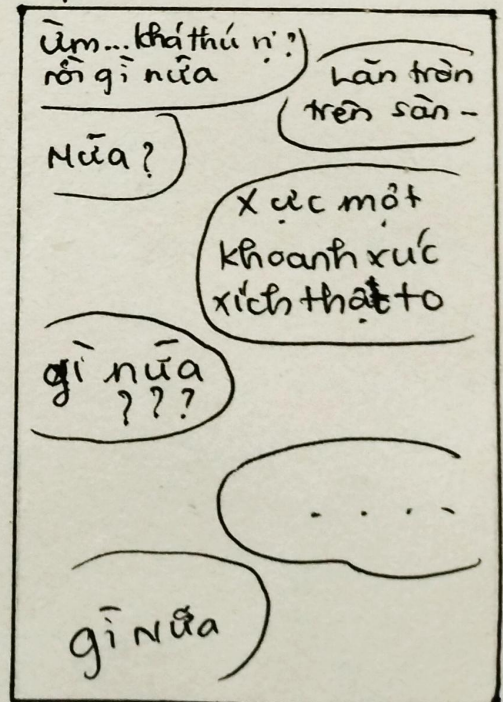 ừm...khá thú vị?
rồi gì nữa
Lăn tròn
trên sàn -
Nữa?
Xực một
khoanh xúc
xích thật to
gì nữa
???
....
gì nữa